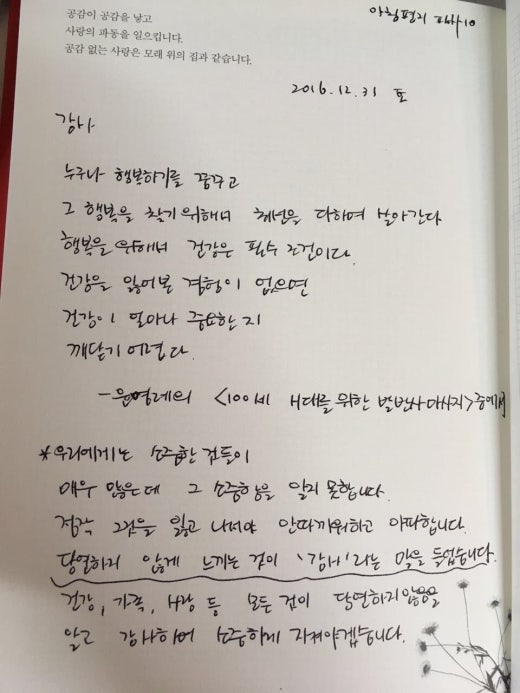 공감이 공감을 낳고
사랑의 파동을 일으킵니다.
공감 없는 사랑은 모래 위의 집과 같습니다.
아침편지 필사10
2016.12.31 토
감사
누구나 행복하기를 꿈꾸고
그 행복을 찾기 위해서 최선을 다하여 살아간다
행복을 위해서 건강은 필수 조건이다.
건강을 잃어본 경험이 없으면
건강이 얼마나 중요한지
깨닫기 어렵다.
-윤영례의 <100세 시대를 위한 발반사마사지>중에서
*우리에게는 소중한 것들이
매우 많은데 그 소중함을 알지 못합니다.
정작 그것을 잃고 나서야 안타까워하고 아파합니다.
당연하지 않게 느끼는 것이 '감사'라는 말을 들었습니다.
건강, 가족, 사랑 등 모든 것이 당연하지않음을
알고 감사하며 소중하게 지켜야겠습니다.